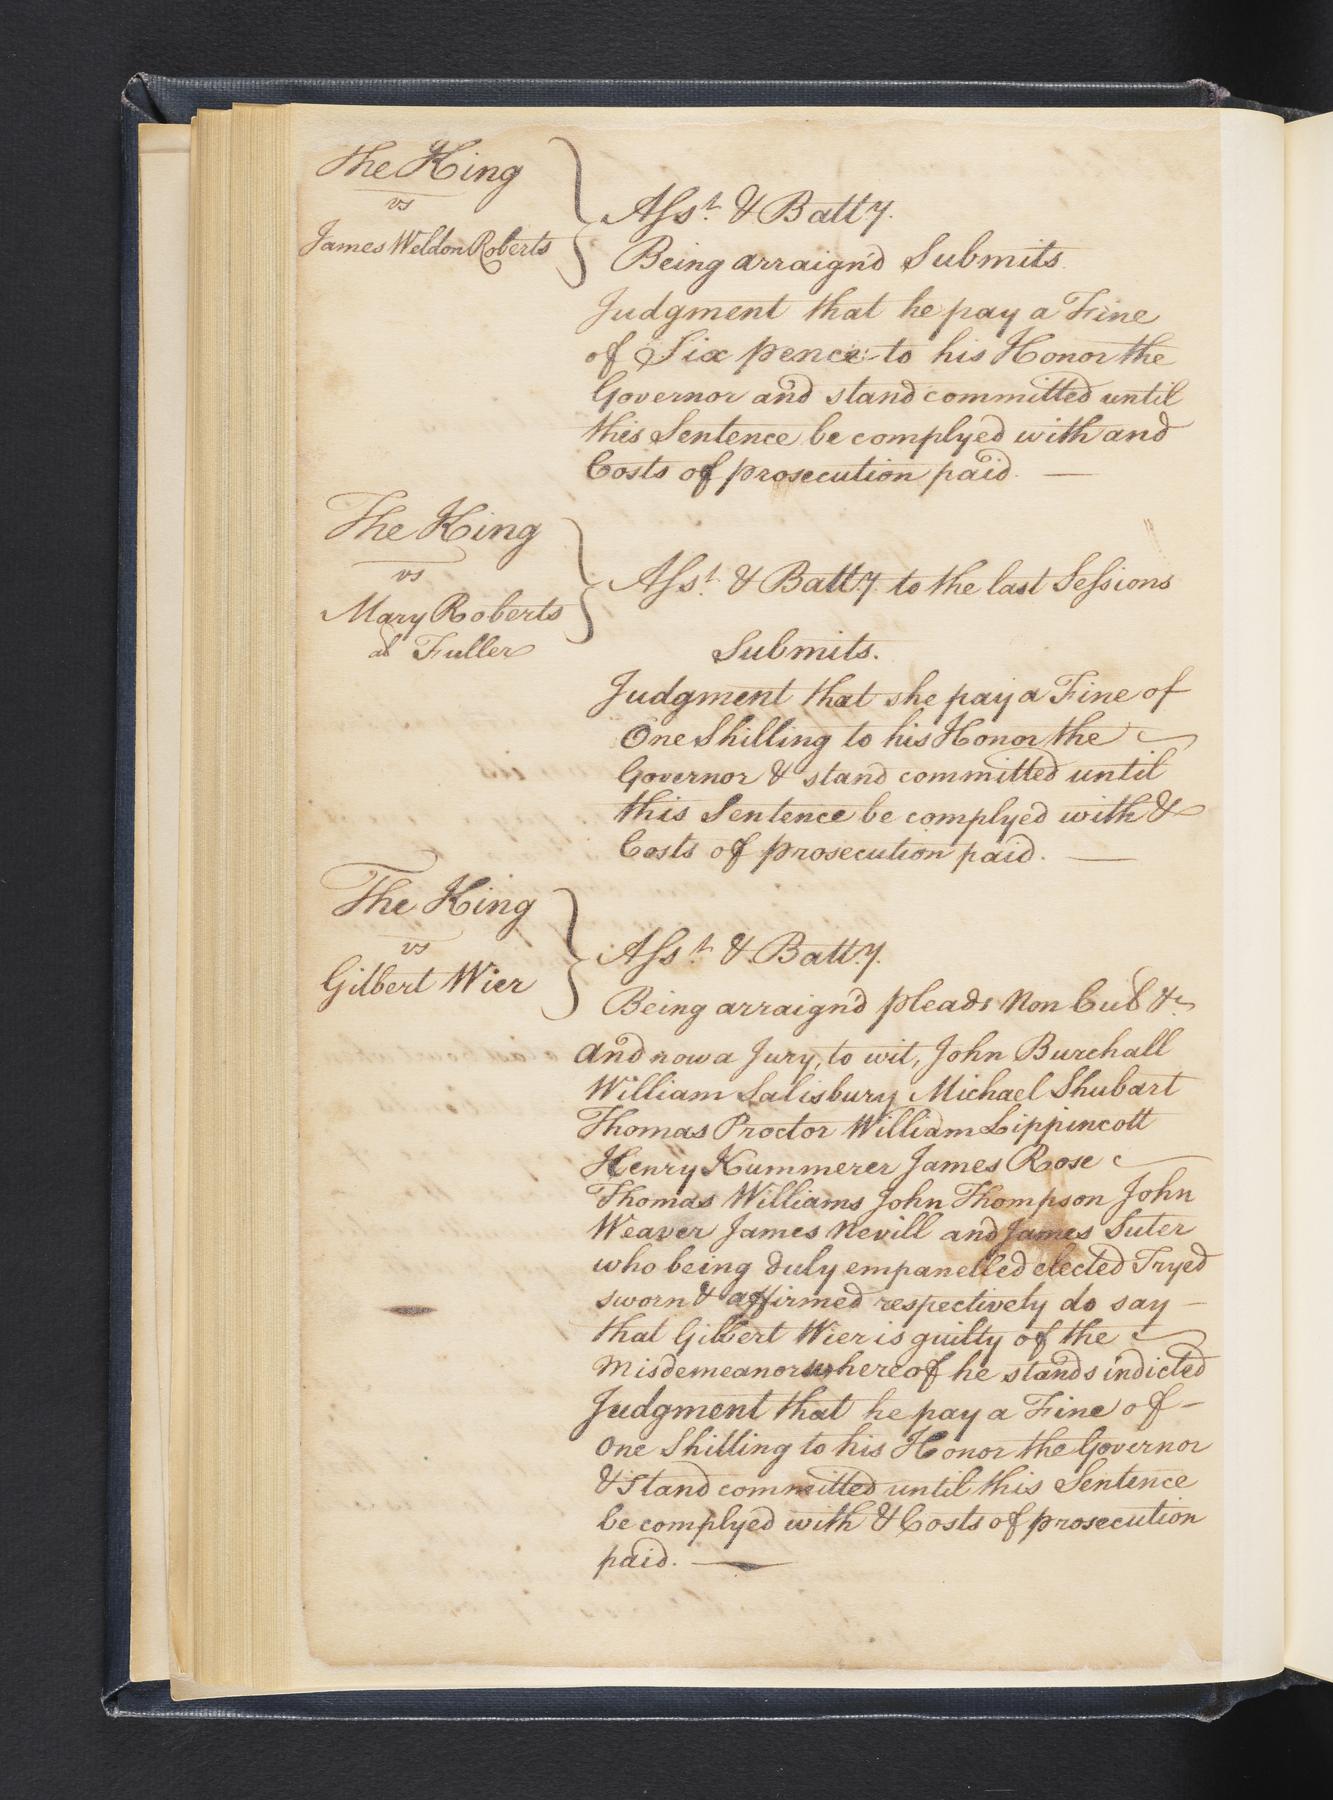 The King
vs
James Weldon Roberts
Asst. & Batty.
Being arraign'd Submits.
Judgment that he pay a Fine
of Six pence to his Honor the
Governor and stand committed until
this Sentence be complyed with and
Costs of prosecution paid. —
The King
vs
Mary Roberts
als Fuller
Asst. & Batty. to the last Sessions
Submits.
Judgment that she pay a Fine of
One Shilling to his Honor the
Governor & stand committed until
this Sentence be complyed with &
Costs of prosecution paid. —
The King
vs
Gilbert Wier
Asst. & Batty.
Being arraign'd pleads Non Cul &c
and now a Jury, to wit, John Burchall
William Salisbury Michael Shubart
Thomas Proctor William Lippincott
Henry Kummerer James Rose
Thomas Williams John Thompson John
Weaver James Nevill and James Suter
who being duly empanelled elected Tryed
sworn & affirmed respectively do say —
that Gilbert Wier is guilty of the
Misdemeanor whereof he stands indicted
Judgment that he pay a Fine of —
One Shilling to his Honor the Governor
& stand committed until this Sentence
be complyed with & Costs of prosecution
paid. —